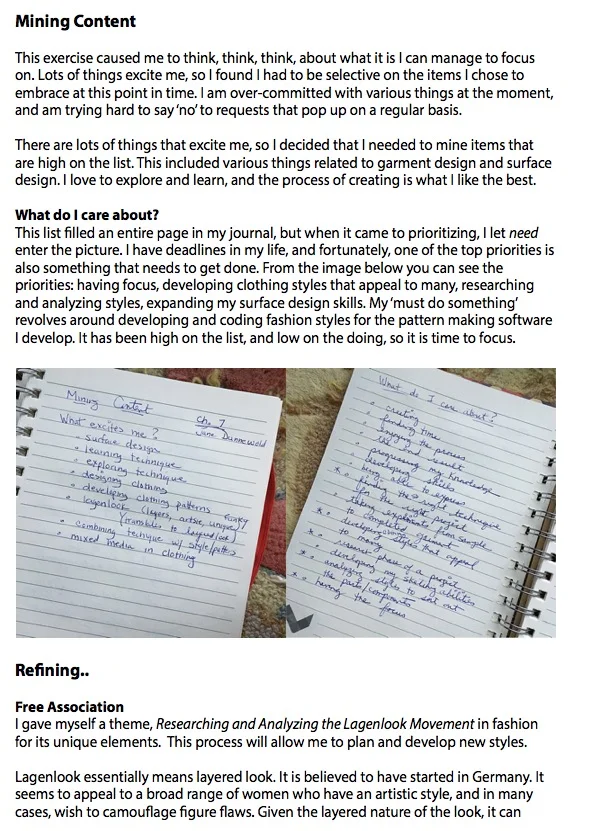 Mining Content
This exercise caused me to think, think, think, about what it is I can manage to focus
on. Lots of things excite me, so I found I had to be selective on the items I chose to
embrace at this point in time. I am over-committed with various things at the moment,
and am trying hard to say 'no' to requests that pop up on a regular basis.
There are lots of things that excite me, so I decided that I needed to mine items that
are high on the list. This included various things related to garment design and surface
design. I love to explore and learn, and the process of creating is what I like the best.
What do I care about?
This list filled an entire page in my journal, but when it came to prioritizing, I let need
enter the picture. I have deadlines in my life, and fortunately, one of the top priorities is
also something that needs to get done. From the image below you can see the
priorities: having focus, developing clothing styles that appeal to many, researching
and analyzing styles, expanding my surface design skills. My 'must do something'
revolves around developing and coding fashion styles for the pattern making software
I develop. It has been high on the list, and low on the doing, so it is time to focus.
Mining Content
Ch. 7
Jane Dunnewold
What excites me?
surface design
learning technique
exploring technique
designing clothing
developing clothing patterns
lagenlook (layers, artsy, unique)
combining technique w/ style/pattern
mixed media in clothing
What do I care about?
creating time
finding time
enjoying the process
the end result
progressing my knowledge
developing skills
being able to express
find the right technique
for the right project
taking explorations from sample
to completed garment
developing styles that appeal
to many
research phase of a project
developing my sketching abilities
analyzing styles to sort out
the parts/components
having the focus
Refining..
Free Association
I gave myself a theme, Researching and Analyzing the Lagenlook Movement in fashion
for its unique elements. This process will allow me to plan and develop new styles.
Lagenlook essentially means layered look. It is believed to have started in Germany. It
seems to appeal to a broad range of women who have an artistic style, and in many
cases, wish to camouflage figure flaws. Given the layered nature of the look, it can